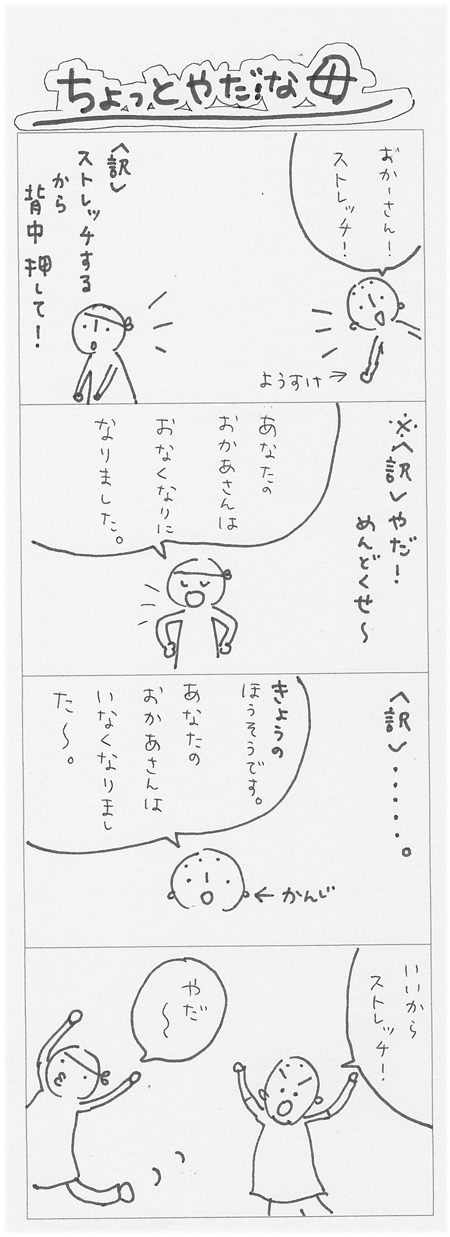 ちょっとやだな母
おかーさん!
ストレッチ!
ようすけ
〈訳〉
ストレッチする
から
背中押して!
※〈訳〉やだ!
めんどくせ〜
あなたの
おかあさんは
おなくなりに
なりました。
〈訳〉······。
きょうの
ほうそうです。
あなたの
おかあさんは
いなくなりまし
た〜。
かんじ
いいから
ストレッチ!
やだ
〜